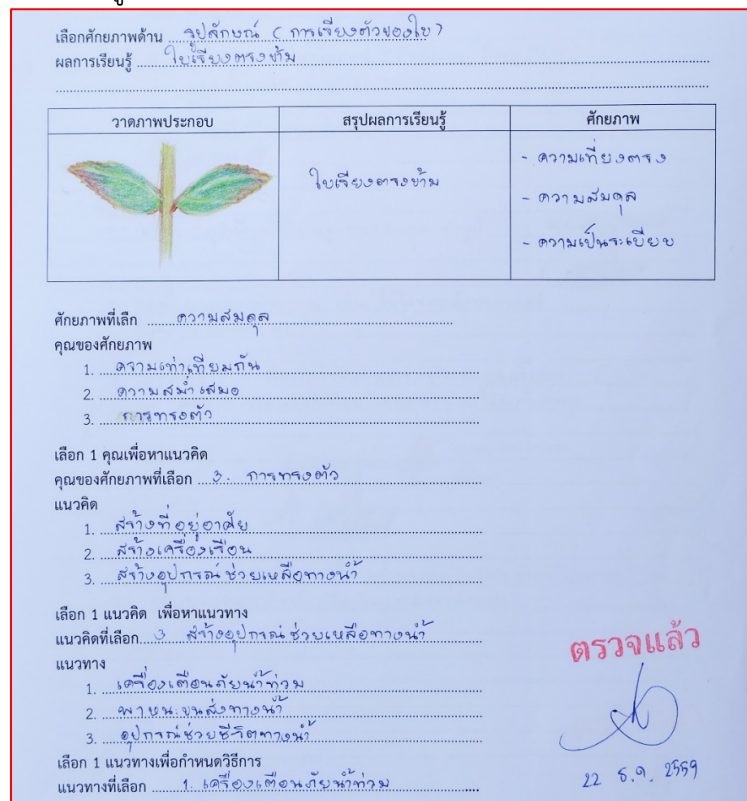 เลือกศักยภาพด้าน รูปลักษณ์ (การเรียงตัวของใบ)
ผลการเรียนรู้ ใบเรียงตรงข้าม
วาดภาพประกอบ สรุปผลการเรียนรู้ ศักยภาพ
ใบเรียงตรงข้าม
- ความเที่ยงตรง
- ความสมดุล
- ความเป็นระเบียบ
ศักยภาพที่เลิก ความสมดุล
คุณของศักยภาพ
1. ความเท่าเทียมกัน
2. ความสม่ำเสมอ
3. การทรงตัว
เลือก 1 คุณเพื่อหาแนวคิด
คุณของศักยภาพที่เลือก 3. การทรงตัว
แนวคิด
1. สร้างที่อยู่อาศัย
2. สร้างเครื่องเรือน
3. สร้างอุปกรณ์ช่วยเหลือทางน้ำ
เลือก 1 แนวคิด เพื่อหาแนวทาง
แนวคิดที่เลือก 3 สร้างอุปกรณ์ช่วยเหลือทางน้ำ
แนวทาง
1. เครื่องเตือนภัยน้ำท่วม
2. พาหนะขนส่งทางน้ำ
3. อุปกรณ์ช่วยชีวิตทางน้ำ
ตรวจแล้ว
เลือก 1 แนวทางเพื่อกำหนดวิธีการ
แนวทางที่เลือก 1. เครื่องเตือนภัยน้ำท่วม
22 ธ.ค. 2559